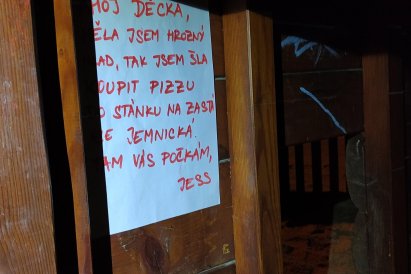 HOJ DĚCKA,
ĚLA JSEM HROZNÝ
LAD, TAK JSEM ŠLA
OUPIT PIZZU
O STÁNKU NA ZASTÁ
CE JEMNICKÁ.
AM VÁS POČKÁM,
JESS